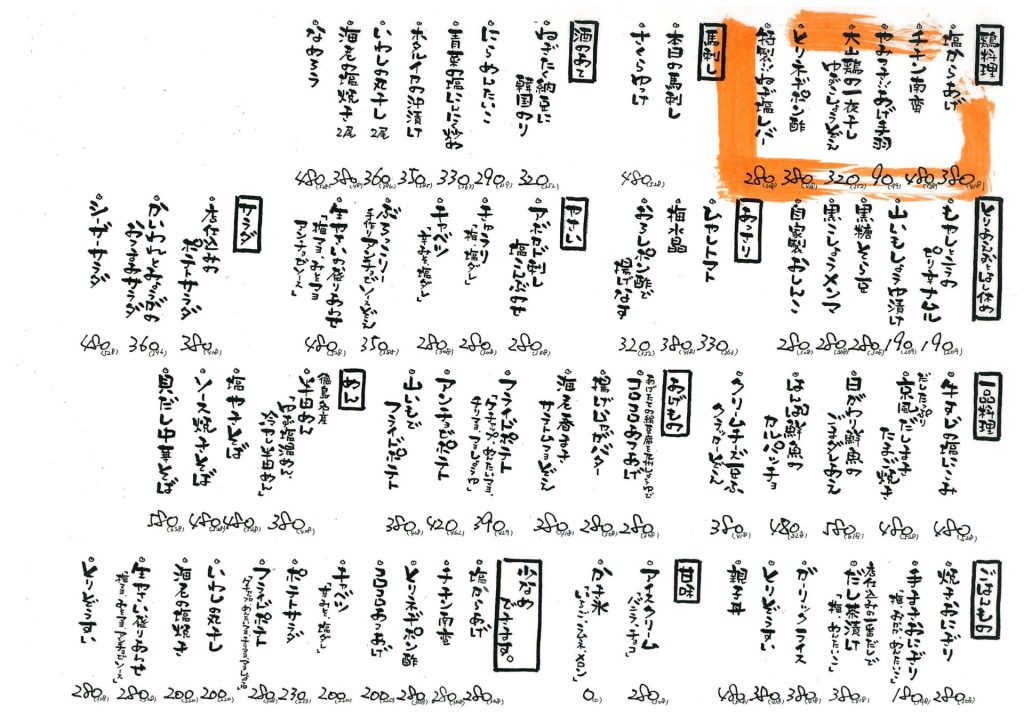 鶏料理
・塩からあげ 380(418)
・チキン南蛮 480(528)
手羽 90(99)
・大山鶏の一夜干し
ゆずこしょうぞえ 320(352)
・とりネギポン酢 380(418)
・特製 ネギ塩レバー 280(308)
馬刺し
・本日の馬刺し
・さくらゆっけ 480(528)
酒のあて
納豆に
韓国のり 320(352)
・にらめんたいこ 290(319)
・青菜の塩にんにく炒め 330(363)
・ホタルイカの沖漬け 350(385)
・いわしの丸干し 2尾 360(396)
・海老の塩焼き 2尾 380(418)
・なめろう 480(528)
とりあえずとはし休め
・もやしとニラの
ピリ辛ナムル 190(209)
・山いもしょうゆ漬け 190(209)
・黒糖そら豆 280(308)
・黒こしょうメンマ 280(308)
・自家製おしんこ 280(308)
あっさり
・ひやしトマト 330(363)
・梅水晶 380(418)
・おろしポン酢で
揚げなす 320(352)
やさい
・アボカド刺し
塩こんぶのせ 280(308)
・キュウリ
「梅・塩ダレ」 280(308)
・キャベツ
「生みそ・塩ダレ」 280(308)
・ぶろっこりー
手作りアンチョビソースぞえ 350
・生やさい盛りあわせ
アンチョビソース」 480(528)
サラダ
ポテトサラダ 380(418)
・かいわれとみょうがの
おつまみサラダ 360(396)
・シーザーサラダ 480(528)
一品料理
・牛すじの塩にこみ 480(528)
だしたっぷり
京風だしまき
たまご焼き 480(528)
・日がわり鮮魚の
ごまだしあえ 580(638)
・はん馬鮮魚の
カルパッチョ 480(528)
・クリームチーズ豆ふ
クラッカーぞえ 380(418)
あげもの
・コロコロあつあげ 280(308)
・揚げじゃがバター 280(308)
・海老春巻き
ぞえ 380(418)
・フライドポテト 390(429)
・アンチョビポテト 420(462)
・山いもで
フライドポテト 380(418)
めん
徳島名産
・半田めん
冷やし半田めん」 380(418)
・塩やきそば 480(528)
・ソース焼きそば 480(528)
・貝だし中華そば 580(638)
ごはんもの
・焼きおにぎり 280(308)
おにぎり
「梅・おかか・めんたいこ」 180(198)
・だし茶漬け
「梅・めんたいこ」 380(418)
・ガーリックライス 380(418)
・とりぞうすい 380(418)
・親子丼 480(528)
甘味
・アイスクリーム
「バニラ・チョコ」 280(308)
・かき氷
「いちご・ブルーハワイ・メロン」 0
小さめ
ですけどね。
・塩からあげ 280(308)
・チキン南蛮 280(308)
・とりネギポン酢 280(308)
・コロコロあつあげ 200(220)
・キャベツ
「生みそ・塩ダレ」 200(220)
・ポテトサラダ 230(253)
・フライドポテト 280(308)
・いわしの丸干し 200(220)
・海老の塩焼き 200(220)
・生やさい盛りあわせ 280(308)
・とりぞうすい 280(308)